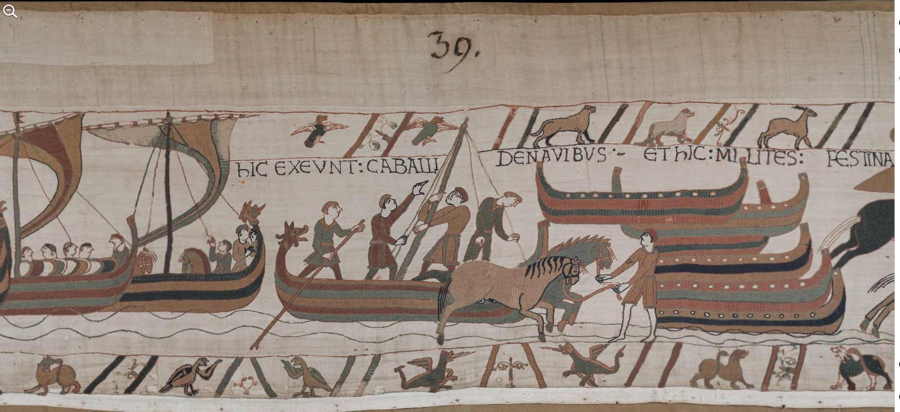 39.
hIC EXEVNT: CABALLI DE NAVIBVS :- ET hIC: MILITES: FESTINA